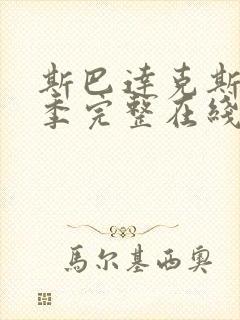 斯巴達克斯
季完整在綫
馬尔基西奥